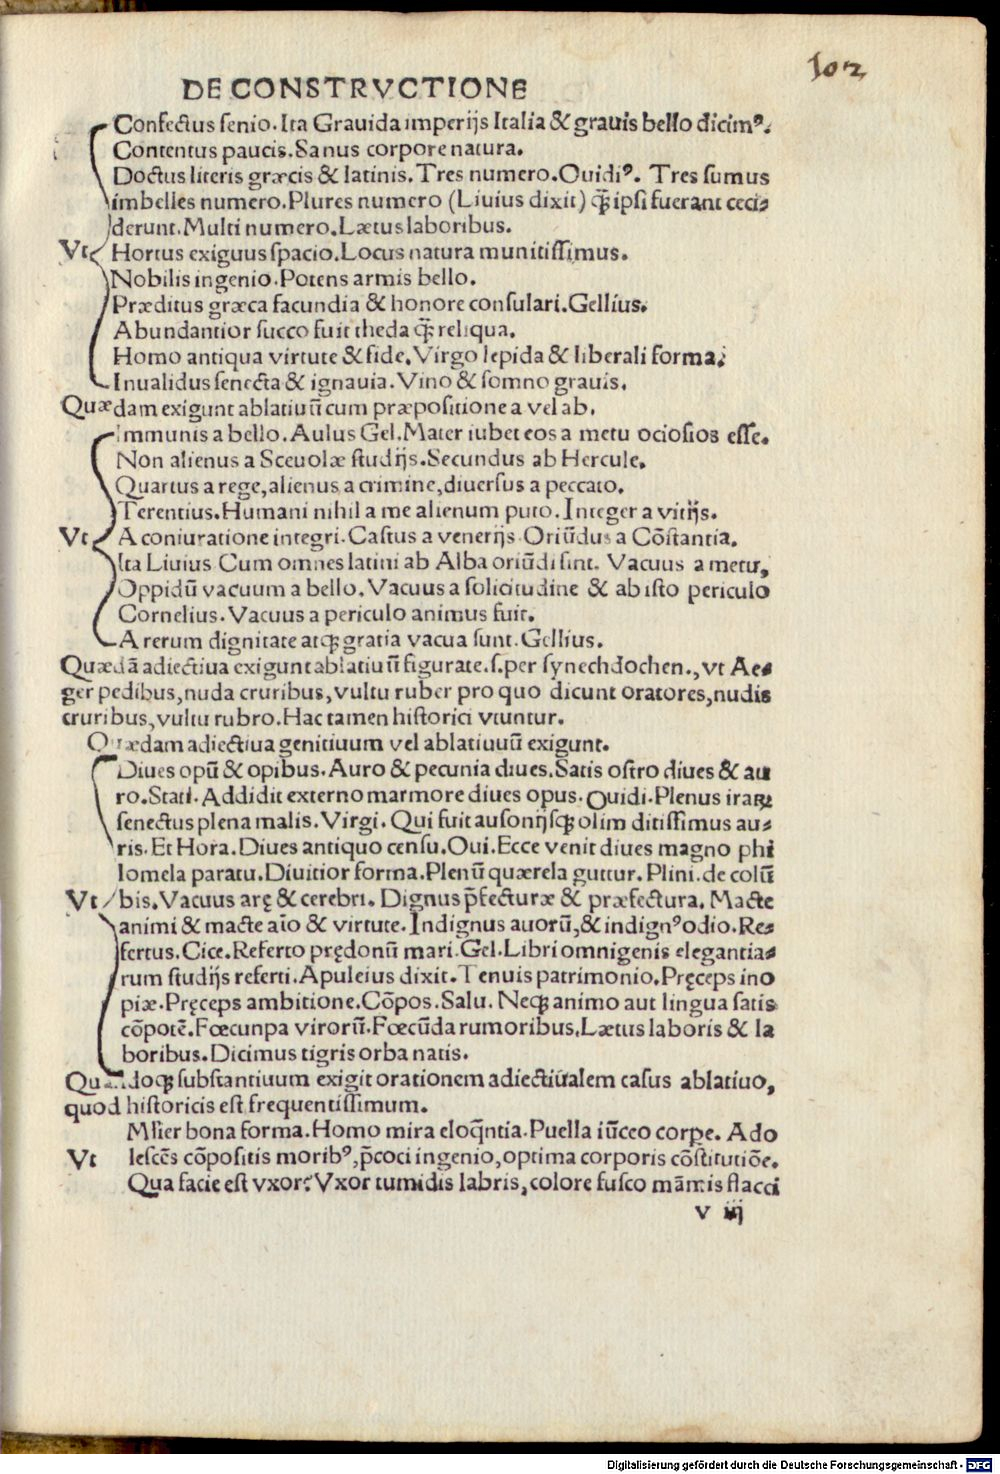 102
DE CONSTRVCTIONE
Confectus senio. Ita Grauida imperijs Italia & grauis bello dicimꝰ.
Contentus paucis. Sanus corpore natura.
Doctus literis græcis & latinis. Tres numero. Ouidiꝰ. Tres sumus
imbelles numero. Plures numero (Liuius dixit) q̃ ipsi fuerant ceci⸗
derunt. Multi numero. Lætus laboribus.
Vt Hortus exiguus spacio. Locus natura munitissimus.
Nobilis ingenio. Potens armis bello.
Præditus græca facundia & honore consulari. Gellius.
Abundantior succo fuit theda q̃ reliqua.
Homo antiqua virtute & fide. Virgo lepida & liberali forma.
Inualidus senecta & ignauia. Vino & somno grauis.
Quædam exigunt ablatiuū cum præpositione a vel ab.
Immunis a bello. Aulus Gel. Mater iubet eos a metu ociosios esse.
Non alienus a Sceuolæ studijs. Secundus ab Hercule.
Quartus a rege, alienus a crimine, diuersus a peccato.
Terentius. Humani nihil a me alienum puto. Integer a vitijs.
Vt A coniuratione integri. Castus a venerijs. Oriūdus a Cōstantia.
Ita Liuius Cum omnes latini ab Alba oriūdi sint. Vacuus a metu,
Oppidū vacuum a bello. Vacuus a solicitudine & ab isto periculo
Cornelius. Vacuus a periculo animus fuit.
A rerum dignitate atqꝫ gratia vacua sunt. Gellius.
Quædā adiectiua exigunt ablatiuū figurate. s. per synechdochen., vt Ae⸗
ger pedibus, nuda cruribus, vultu ruber pro quo dicunt oratores, nudis
cruribus, vultu rubro. Hac tamen historici vtuntur.
Quædam adiectiua genitiuum vel ablatiuuū exigunt.
Diues opū & opibus. Auro & pecunia diues. Satis ostro diues & au
ro. Stati. Addidit externo marmore diues opus. Ouidi. Plenus iraꝝ
senectus plena malis. Virgi. Qui fuit ausonijsqꝫ olim ditissimus au⸗
ris. Et Hora. Diues antiquo censu. Oui. Ecce venit diues magno phi
lomela paratu. Diuitior forma. Plenū quærela guttur. Plini. de colū
Vt bis. Vacuus arę & cerebri. Dignus p̄fecturæ & præfectura. Macte
animi & macte aīo & virtute. Indignus auorū, & indignꝰ odio. Re⸗
fertus. Cice. Referto prędonū mari. Gel. Libri omnigenis elegantia⸗
rum studijs referti. Apuleius dixit. Tenuis patrimonio. Pręceps ino
piæ. Pręceps ambitione. Cōpos. Salu. Neqꝫ animo aut lingua satis
cōpotē. Fœcunpa virorū. Fœcūda rumoribus. Lætus laboris & la
boribus. Dicimus tigris orba natis.
Quandoqꝫ substantiuum exigit orationem adiectiualem casus ablatiuo,
quod historicis est frequentissimum.
Mlier bona forma. Homo mira eloq̄ntia. Puella iūceo corpe. Ado
Vt lescēs cōpositis moribꝰ, p̄coci ingenio, optima corporis cōstitutiōe.
Qua facie est vxor? Vxor tumidis labris, colore fusco mām̄is flacci
v iij
Digitalisierung gefördert durch die Deutsche Forschungsgemeinschaft - DFG